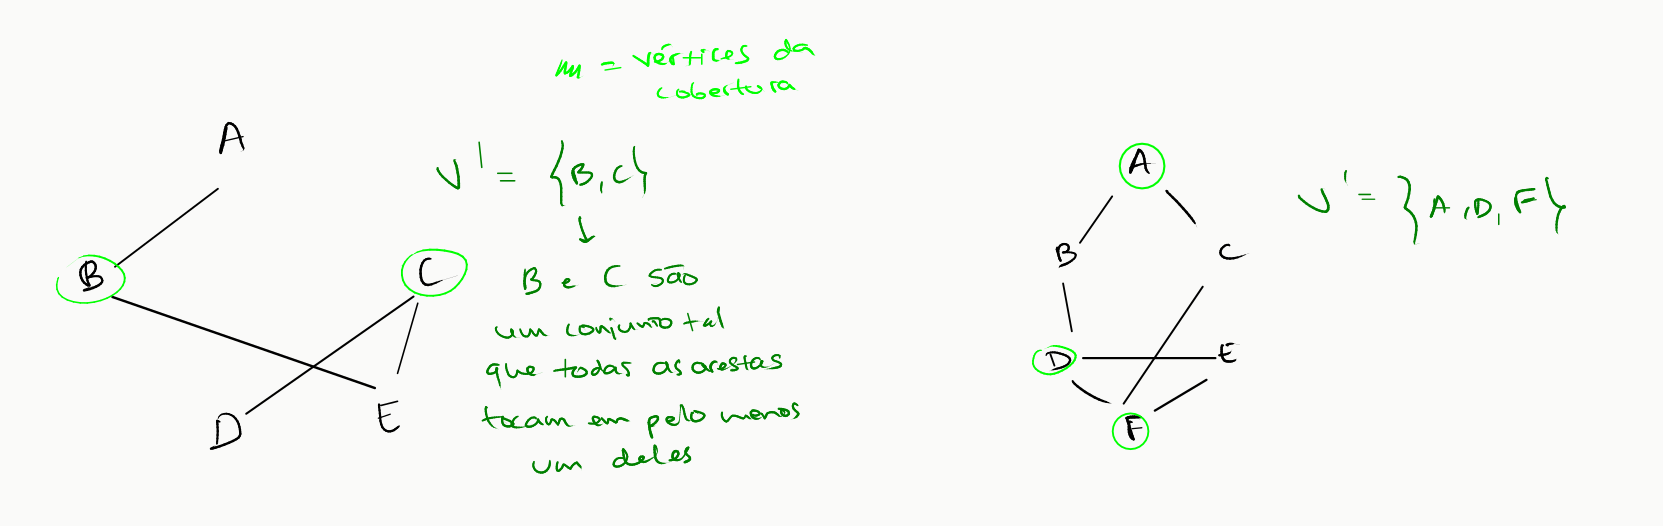 m = vértices da
cobertura
A
B
C
D
E
V' = {B, C}
↓
B e C são
um conjunto tal
que todas as arestas
tocam em pelo menos
um deles
A
B
C
D
E
F
V' = {A, D, F}